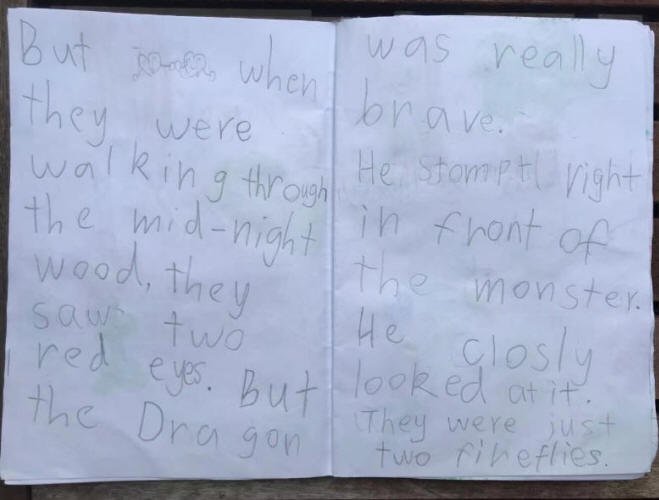 But when
they were
walking through
the mid-night
wood, they
saw two
red eyes. But
the Dragon
was really
brave.
He stompt right
in front of
the monster.
He closly
looked at it.
They were just
two fireflies.